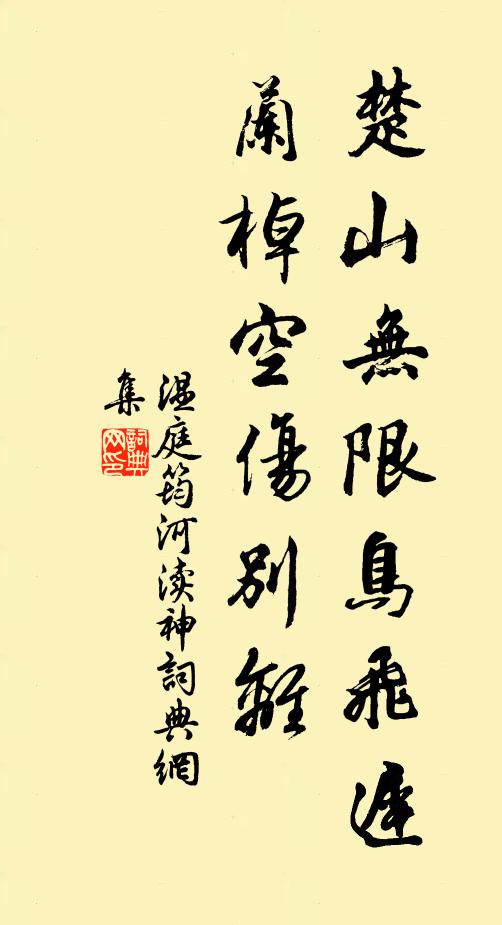 楚山無限鳥飛遲
蘭棹空傷別離
温庭筠河渎神詞典網
集
詞典
网印